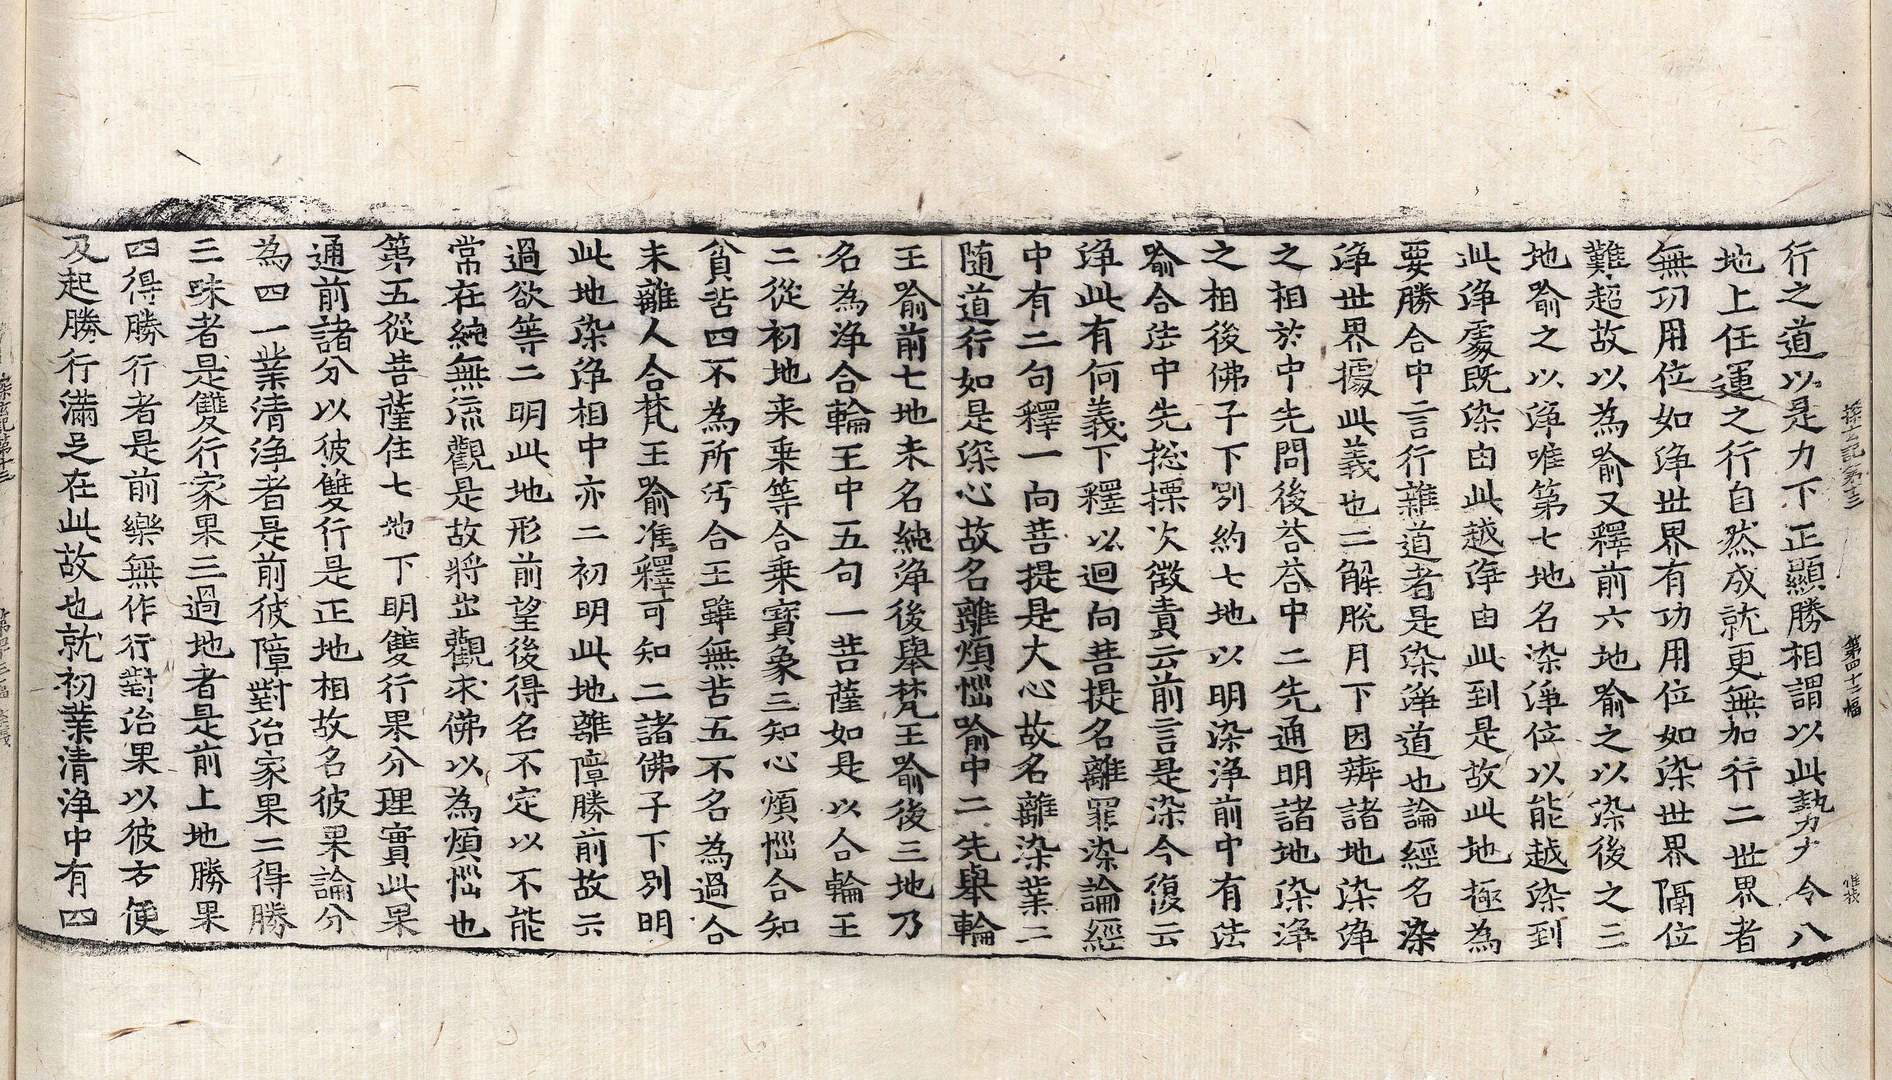 探玄記第十三　第四十二幅
行之道以是力下正顯勝相謂以此勢力令八
地上任運之行自然成就更無加行二世界者
無功用位如淨世界有功用位如染世界隔位
難超故以為喻又釋前六地喻之以染後之三
地喻之以淨唯第七地名染淨位以能越染到
此淨處既染由此越淨由此到是故此地極為
要勝合中二言行離道者是染淨道也論經名染
淨世界據此義也二解脫月下因辨諸地染淨
之相於中先問後荅荅中二先通明諸地染淨
之相後佛子下別約七地以明染淨前中有法
喻合法中先捴摽次徵責云前言是染今復云
淨此有何義下釋以迴向菩提名離罪染論經
中有二句釋一向菩提是大心故名離染業二
随道行如是深心故名離煩惱喻中二先舉輪
王喻前七地未名純淨後舉梵王喻後三地乃
名為淨合輪王中五句一菩薩如是以合輪王
二從初地来乗等合乗寶象三知心煩惱合知
貧苦四不為所污合王雖無苦五不名為過合
未離人合梵王喻准釋可知二諸佛子下別明
此地染淨相中亦二初明此地離障勝前故云
過欲等二明此地形前望後得名不定以不能
常在純無流觀是故將出觀求佛以為煩惱也
第五從菩薩住七地下明雙行果分理實此果
通前諸分以彼雙行是正地相故名彼果論分
為四一業清淨者是前彼障對治家果二得勝
三昧者是雙行家果三過地者是前上地勝果
四得勝行者是前樂無作行對治果以彼方便
及起勝行滿足在此故也就初業清淨中有四